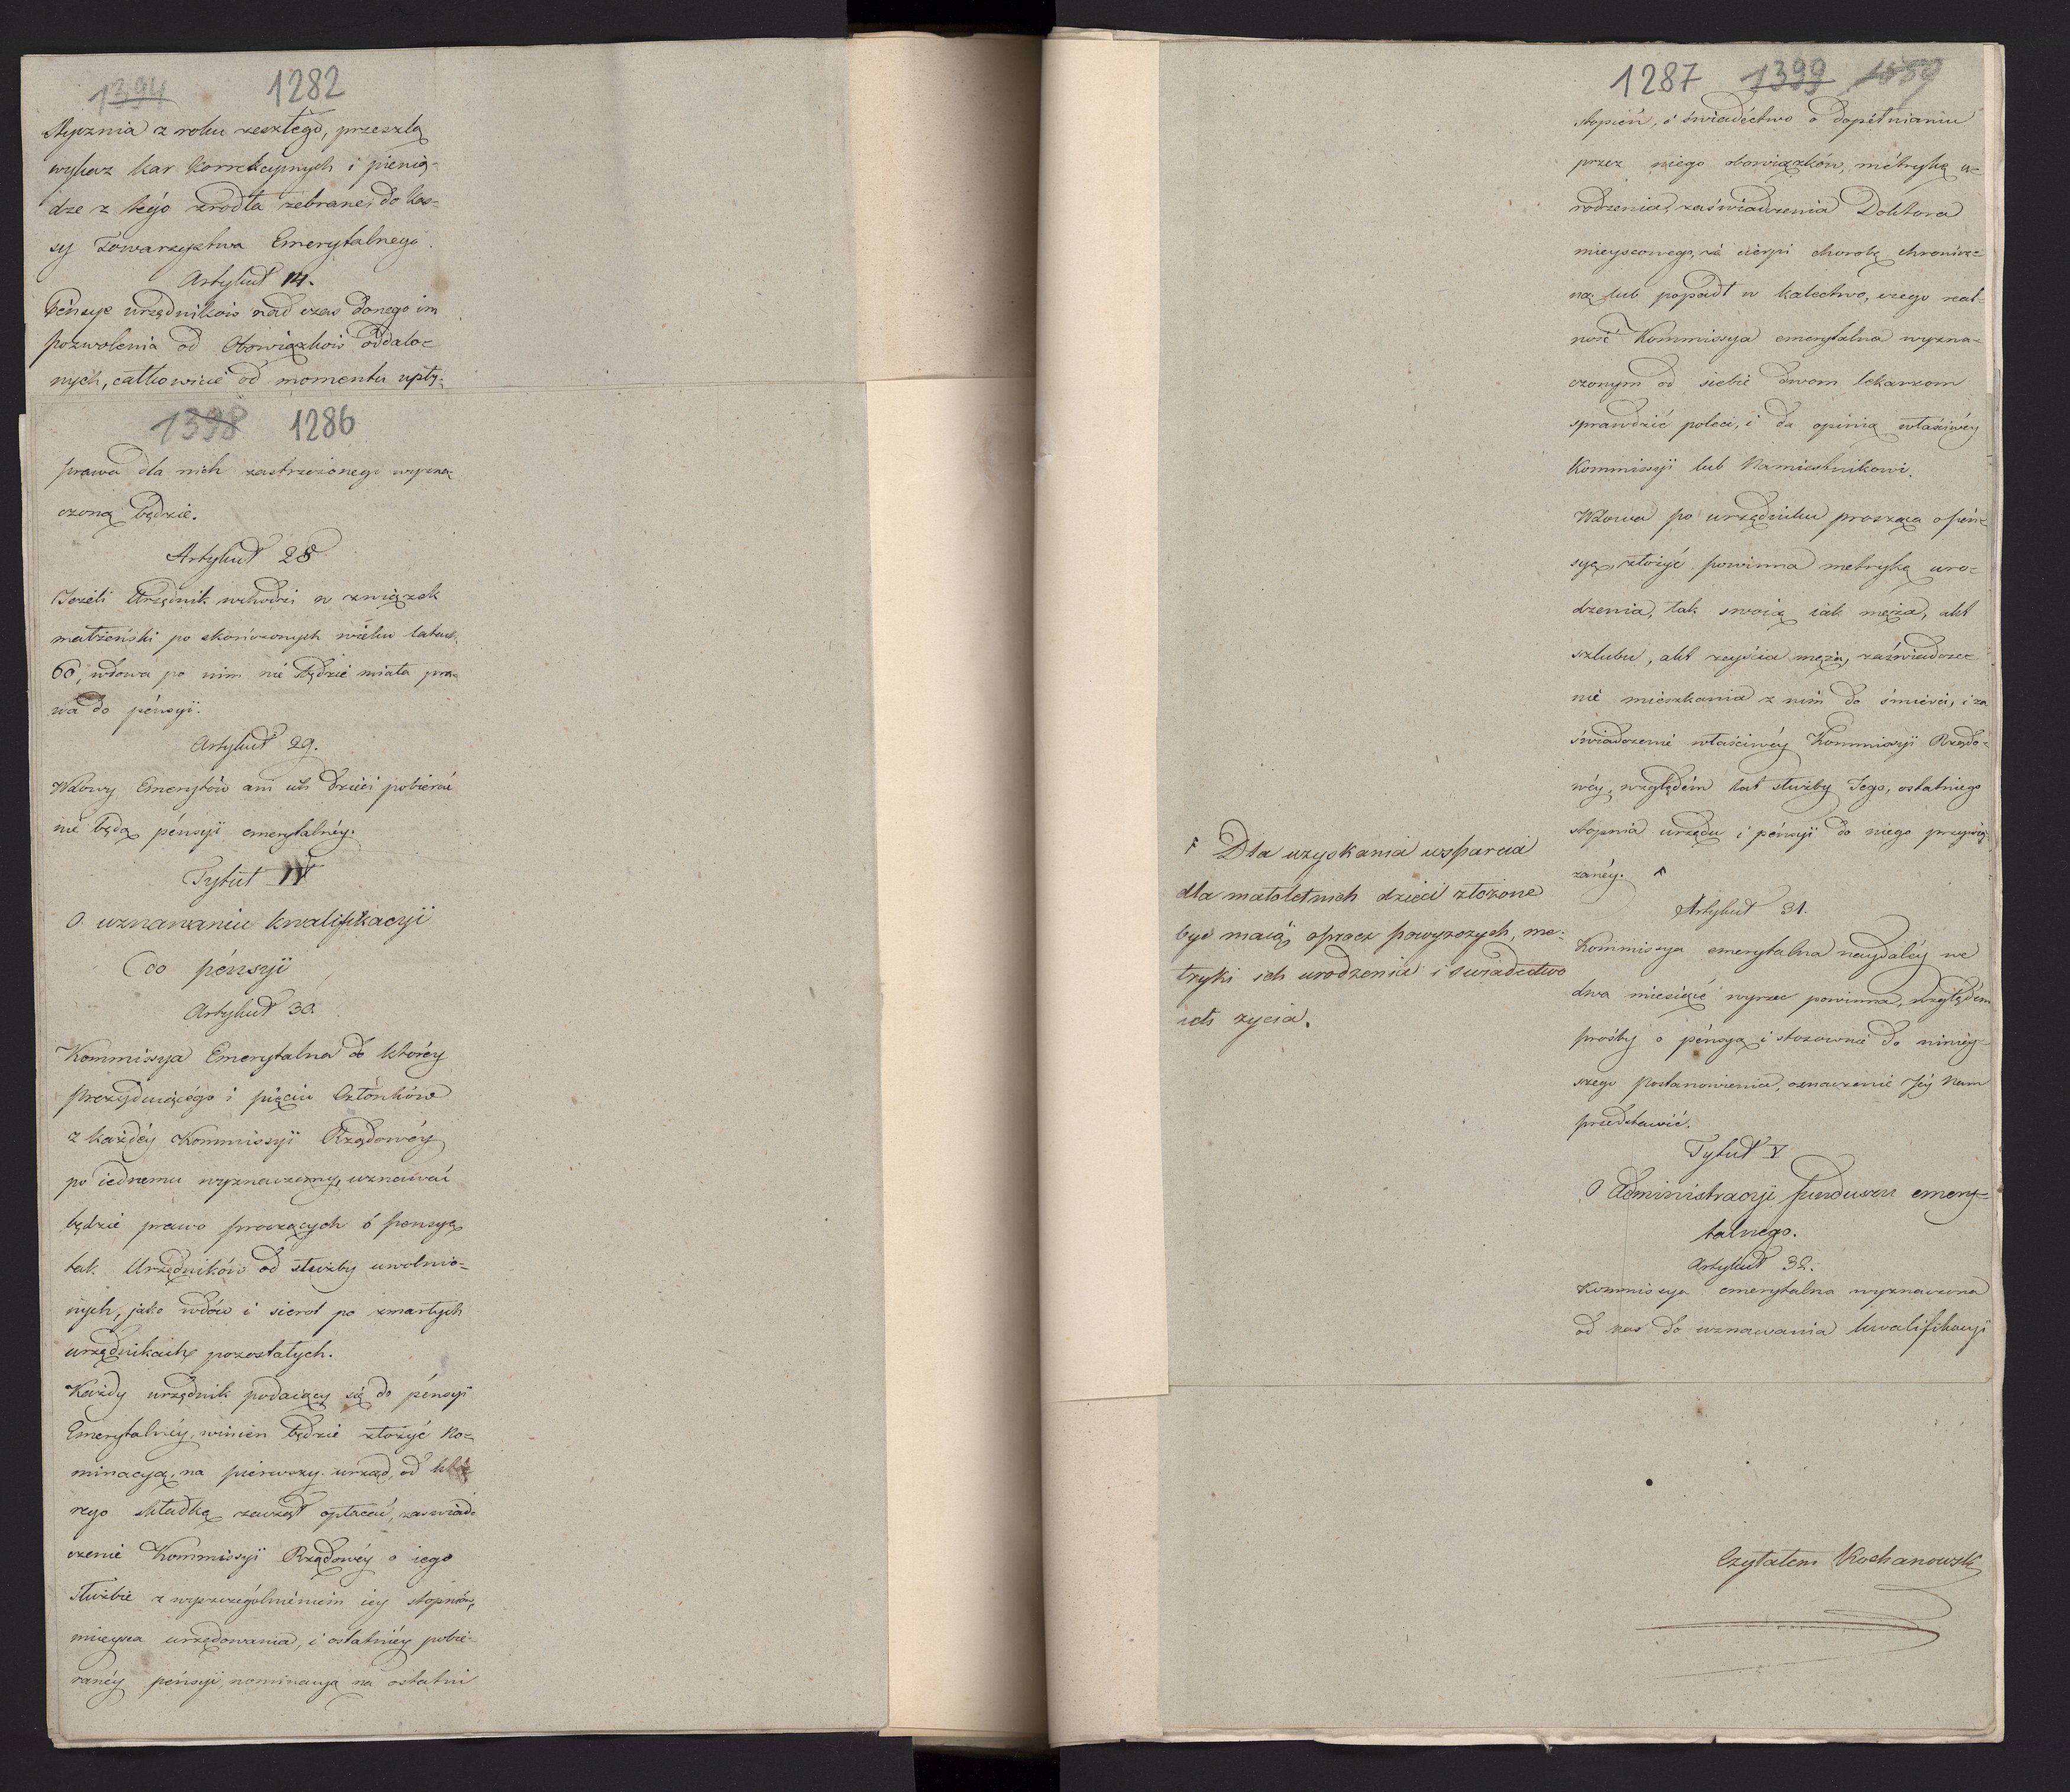 1394 1282
stycznia z roku zeszłego, przeszlą
wykaz kar korrekcyinych i pienią-
dze z tégo zrodła zebrane, do Kas-
sy Towarzystwa Emerytalnego.
Artykuł 14.
Pénsye urzędników nad czas danego im
pozwolenia od Obowiązków oddalo-
nych, całkowicie od momentu upły-
1398 1286
prawa dla nich zastrzeżonego wyzna-
czoną będzie.
Artykuł 28
Jeżeli Urzędnik wchodzi w związek
małżeński po skończonych wieku latach
60, wdowa po nim nié będzie miała pra-
wa do pénsyi.
Artykuł 29.
Wdowy Emerytów ani ich dzieci pobierać
nié będą pénsyi emerytalnéy.
Tytuł IV
O uznawaniu kwalifikacyi
do pénsyi
Artykuł 30.
Kommissya Emerytalna do któréy
prezyduiącégo i pięciu Członków
z każdéy Kommissyi Rządowéy
po iednemu wyznaczemy, uznawać
będzie prawo proszących o pensyę
tak Urzędników od służby uwolnio-
nych, jako wdów i sierot po zmarłych
urzędnikach pozostałych.
Każdy urzędnik podaiący się do pénsyi
Emerytalnéy, winien będzie złożyć No-
minacyą, na pierwszy urząd, od któ-
rego składkę zaczął opłacać, zaswiad-
czenié Kommissyi Rządowéy o iego
służbie z wyszczególnieniem iey stopniów,
mieysca urzędowania, i ostatniéy pobie-
ranéy pénsyi, nominacyą na ostatni
1287 1399
stopień, i świadéctwo o dopełnianiu
przez niego obowiązków, métrykę u-
rodzenia, zaświadczenia Doktora
mieyscowego, że cierpi chorobę chronicz-
ną lub popadł w kalectwo, czego real-
ność Kommissya emerytalna wyzna-
czonym od siebie dwom lekarzom
sprawdzić poleci, i da opinią właściwéy
Kommissyi lub Namiestnikowi.
Wdowa po urzędniku prosząca o pén-
syę, złożyć powinna metrykę uro-
dzenia, tak swoią iak męża, akt
szlubu, akt zeyścia męża, zaświadcze-
nié mieszkania z nim do śmierci, i za
świadczenié właściwéy Kommissyi Rządo-
wéy, względém lat służby Jego, ostatniego
stopnia urzędu i pénsyi do niego przywią-
zanéy. ⌃
⌃ Dla uzyskania wsparcia
dla małoletnich dzieci złożone
być maią, oprocz powyzszych, me-
tryki ich urodzenia i swiadectwo
ich zycia.
Artykuł 31.
Kommissya emerytalna naydaléy we
dwa miesiące wyrzec powinna, względém
prośby o pénsyą i stosownie do niniéy-
szego postanowienia, oznaczenie Jéy Nam
przedstawić.
Tytuł V
O Administracyi funduszu emery-
talnego.
Artykuł 32.
Kommissya emerytalna wyznaczona
od nas do uznawania kwalifikacyi
Czytałem Kochanowski